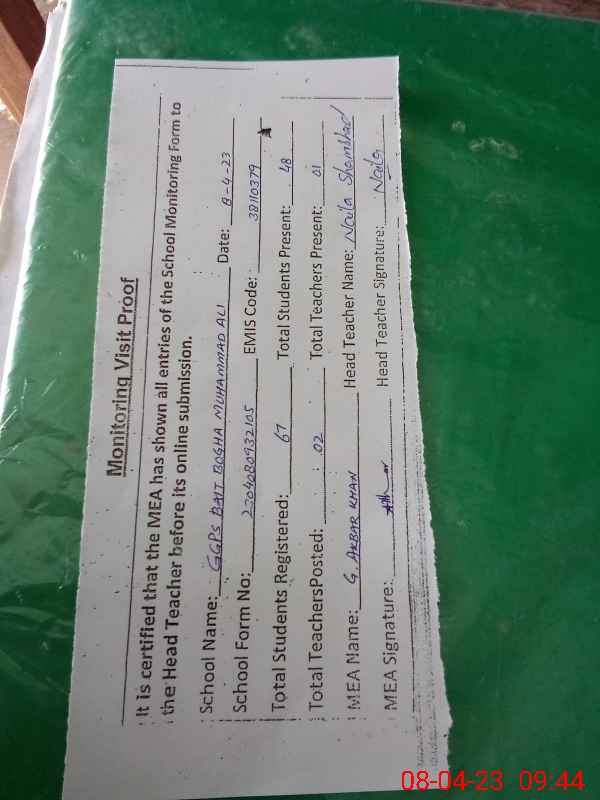 Monitoring Visit Proof
It is certified that the MEA has shown all entries of the School Monitoring Form to
the Head Teacher before its online submission.
School Name: GGPS BAIT BOGHA MUHAMMAD ALI Date: 8-4-23
School Form No: 2304080932105 EMIS Code: 38110379
Total Students Registered: 67 Total Students Present: 48
Total TeachersPosted: 02 Total Teachers Present: 01
MEA Name: G. AKBAR KHAN Head Teacher Name: Naila Shamshad
MEA Signature: Head Teacher Signature: Naila
08-04-23 09:44